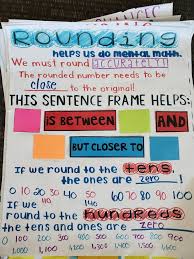 Rounding
HELPS US do MENTAL MATH.
We must round ACCURATELY!
The rounded number needs to be
close to the original!
THIS SENTENCE FRAME HELPS:
IS BETWEEN AND
BUT CLOSER TO
If we round to the tens,
the ones are zero
0 10 20 30 40 50 60 70 80 90 100
If we
round to the hundreds
the tens and ones are zero
0 100 200 300 400 500 600 700 800 900